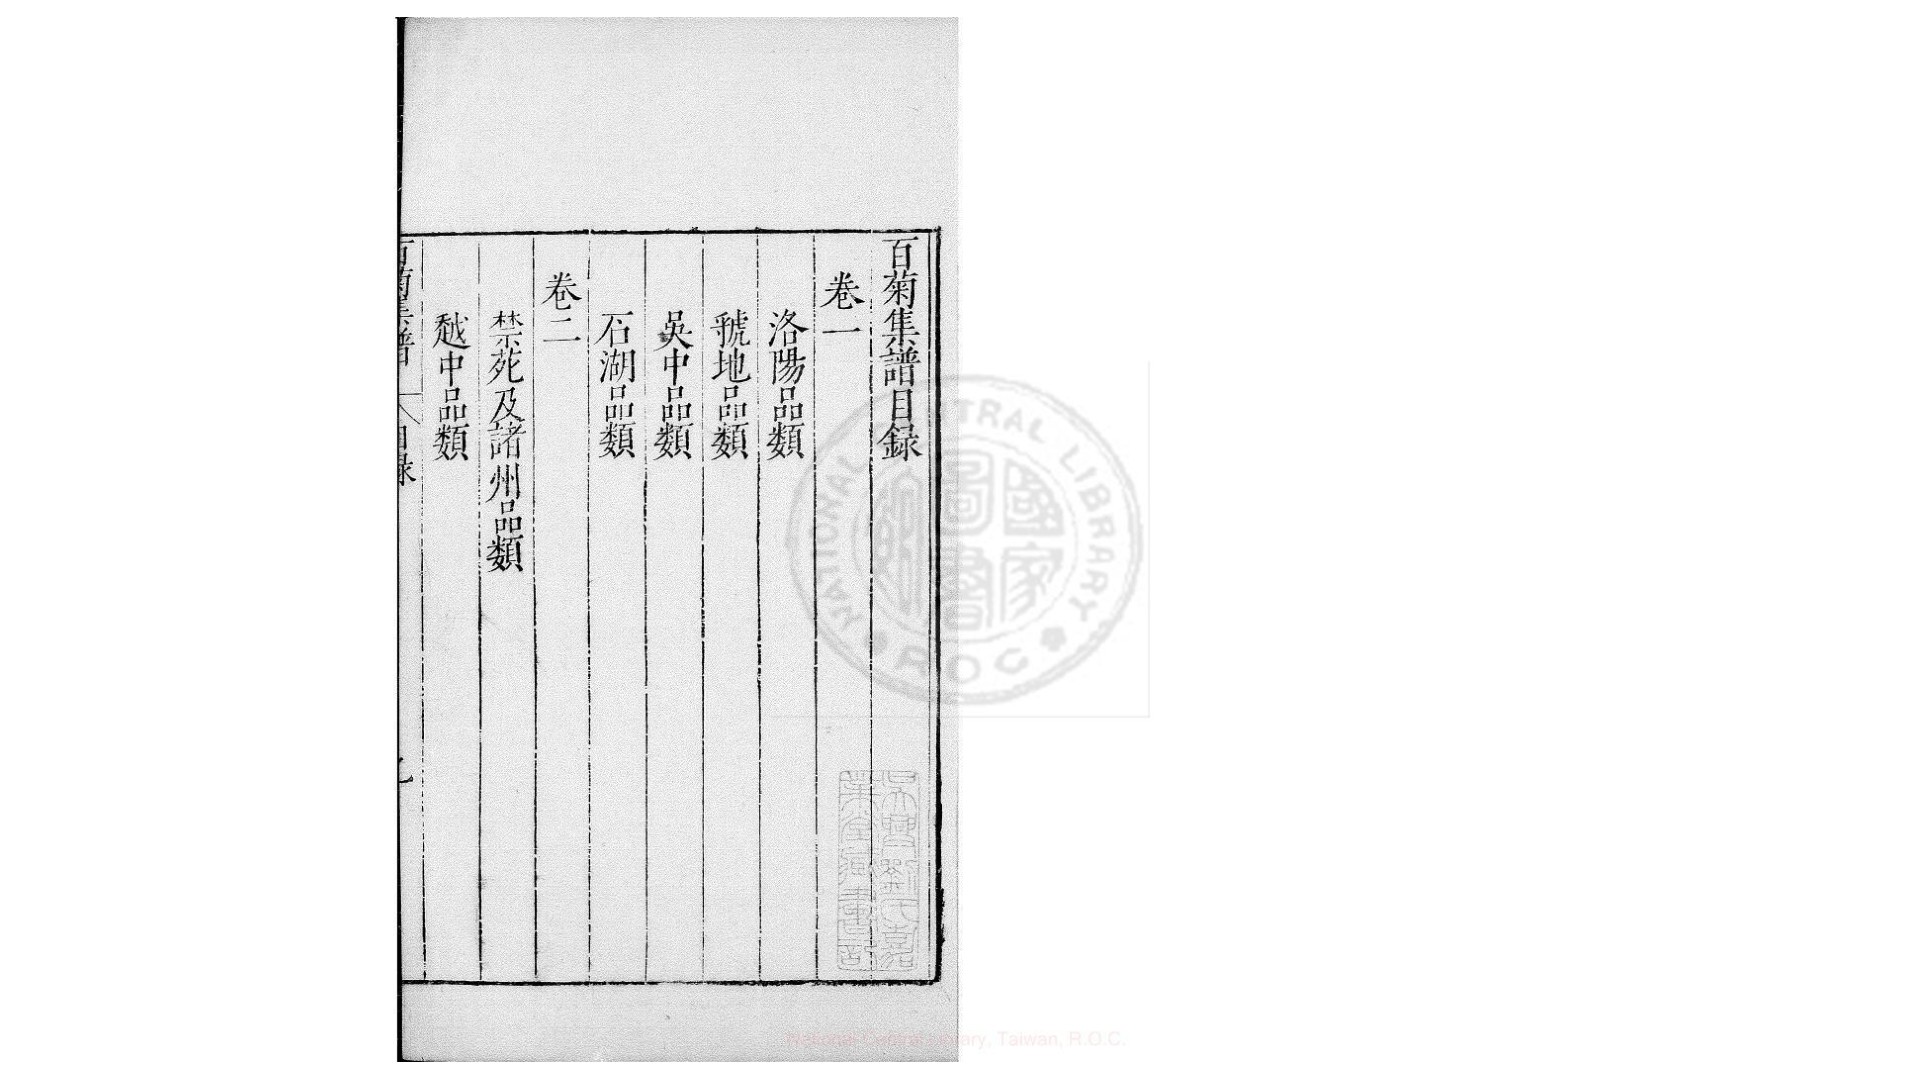 百菊集譜目録
卷一
洛陽品類
虢地品類
吳中品類
石湖品類
卷二
禁苑及諸州品類
越中品類
百菊集譜
目録
NATIONAL CENTRAL LIBRARY
R O C
國家圖書館
吳興劉氏嘉業堂藏書記
National Central Library, Taiwan, R.O.C.